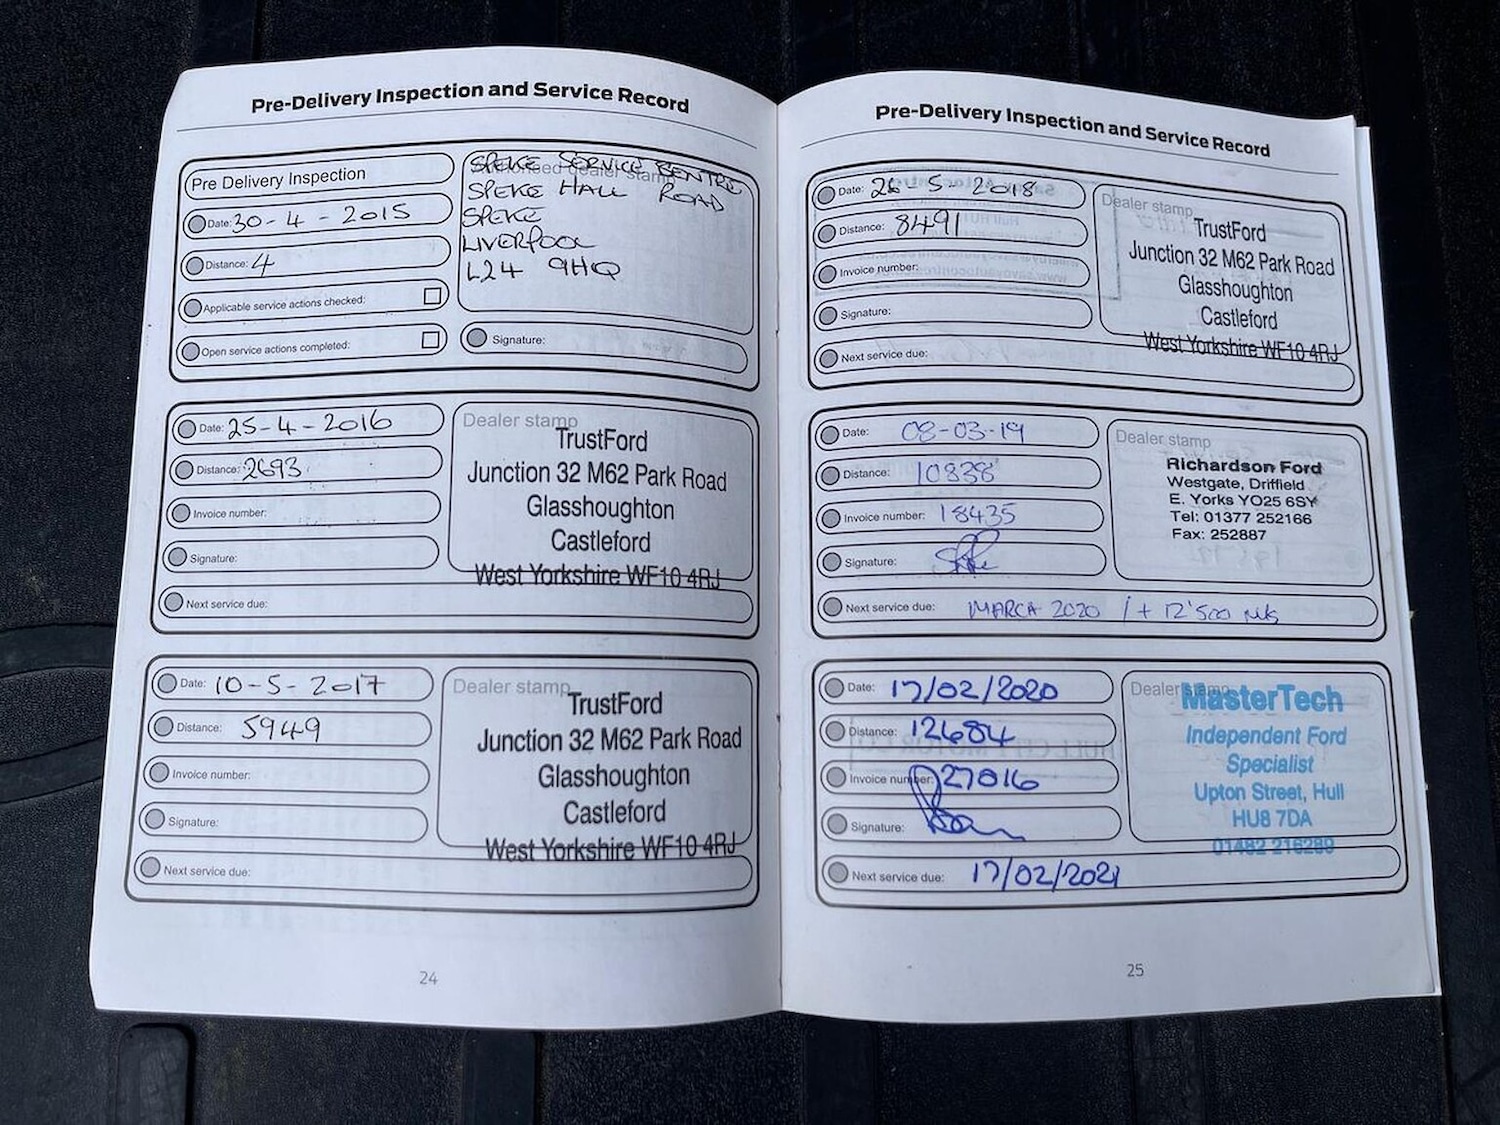 Pre-Delivery Inspection and Service Record
Pre Delivery Inspection
Date: 30-4-2015
Distance: 4
Applicable service actions checked:
Open service actions completed:
Authorised dealer stamp
SPEKE SERVICE CENTRE
SPEKE HALL ROAD
SPEKE
LIVERPOOL
L24 9HQ
Signature:
Date: 25-4-2016
Distance: 2693
Invoice number:
Signature:
Next service due:
Dealer stamp
TrustFord
Junction 32 M62 Park Road
Glasshoughton
Castleford
West Yorkshire WF10 4RJ
Date: 10-5-2017
Distance: 5949
Invoice number:
Signature:
Next service due:
Dealer stamp
TrustFord
Junction 32 M62 Park Road
Glasshoughton
Castleford
West Yorkshire WF10 4RJ
24
Pre-Delivery Inspection and Service Record
Date: 26-5-2018
Distance: 8491
Invoice number:
Signature:
Next service due:
Dealer stamp
TrustFord
Junction 32 M62 Park Road
Glasshoughton
Castleford
West Yorkshire WF10 4RJ
Date: 08-03-19
Distance: 10838
Invoice number: 18435
Signature:
Next service due: MARCH 2020 / + 12'500 mls
Dealer stamp
Richardson Ford
Westgate, Driffield
E. Yorks YO25 6SY
Tel: 01377 252166
Fax: 252887
Date: 17/02/2020
Distance: 12684
Invoice number: 27016
Signature:
Next service due: 17/02/2021
Dealer stamp
MasterTech
Independent Ford
Specialist
Upton Street, Hull
HU8 7DA
01482 216289
25